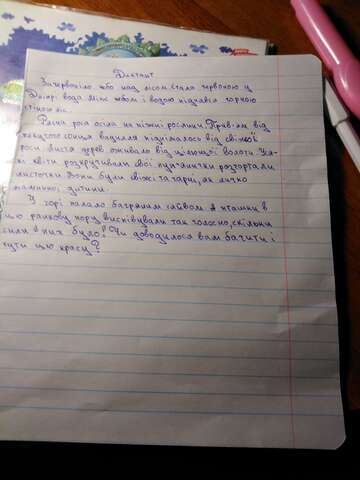 Диктант
Зачервоніло небо над лісом, стала червоною у
Дніпрі вода між небом і водою піднявся чорною
стіною ліс.
Рясна роса осіла на ніжні рослини. Привітне від
сонця вадилля підіймалось від свіжої
роси листя дерев оживало від цілющої вологи. Усякі
квіти розкручували свої пуп'янички розгортали
листочки. Вони були свіжі та гарні, як личко
дитини.
У горі палало багряним сяйвом. А пташки в
цю ранкову пору висвівували так голосно, скільки
сили в них було! Чи доводилося вам бачити і
чути цю красу?